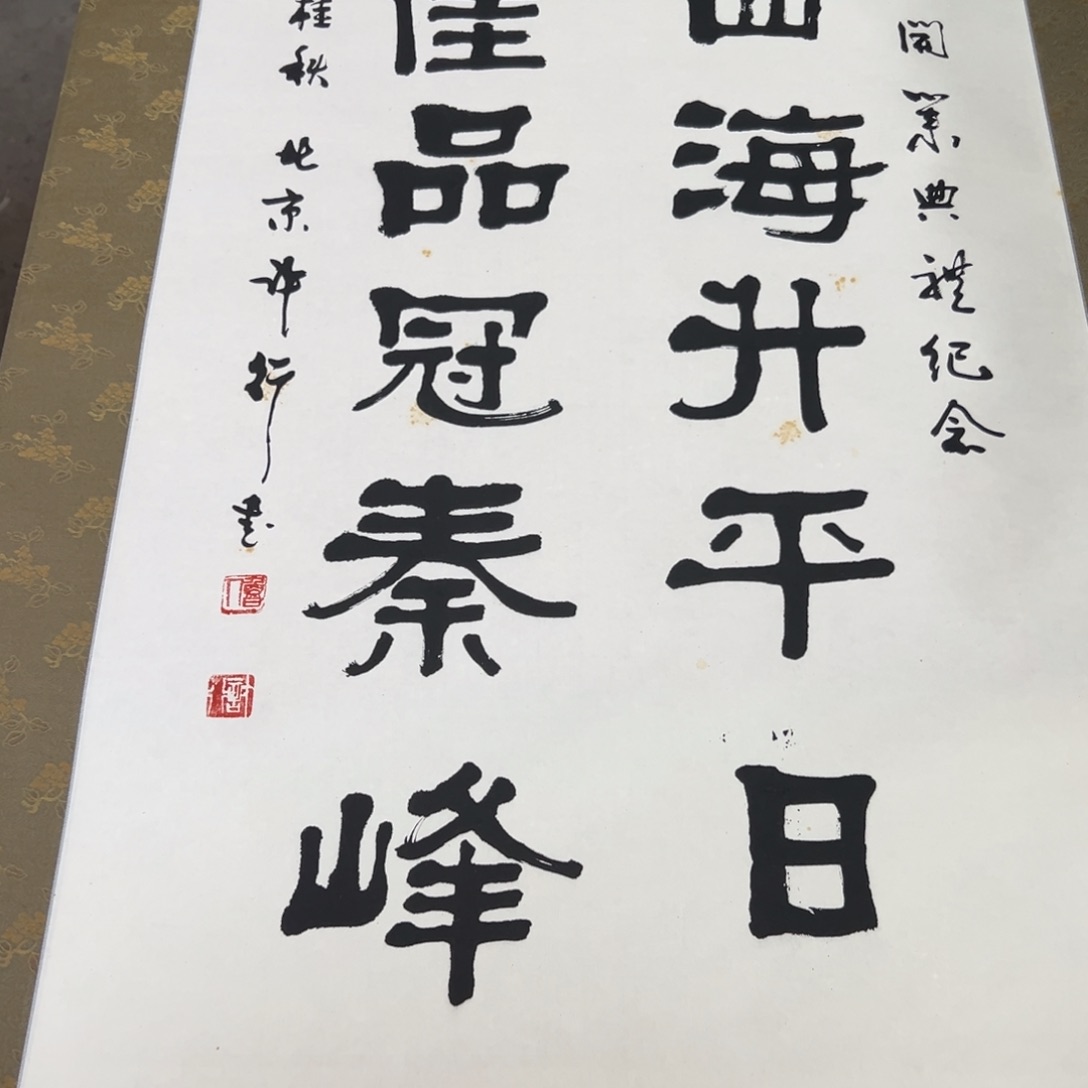 開業典禮紀念
四海升平日
佳品冠秦峰
桂秋 北京許行書